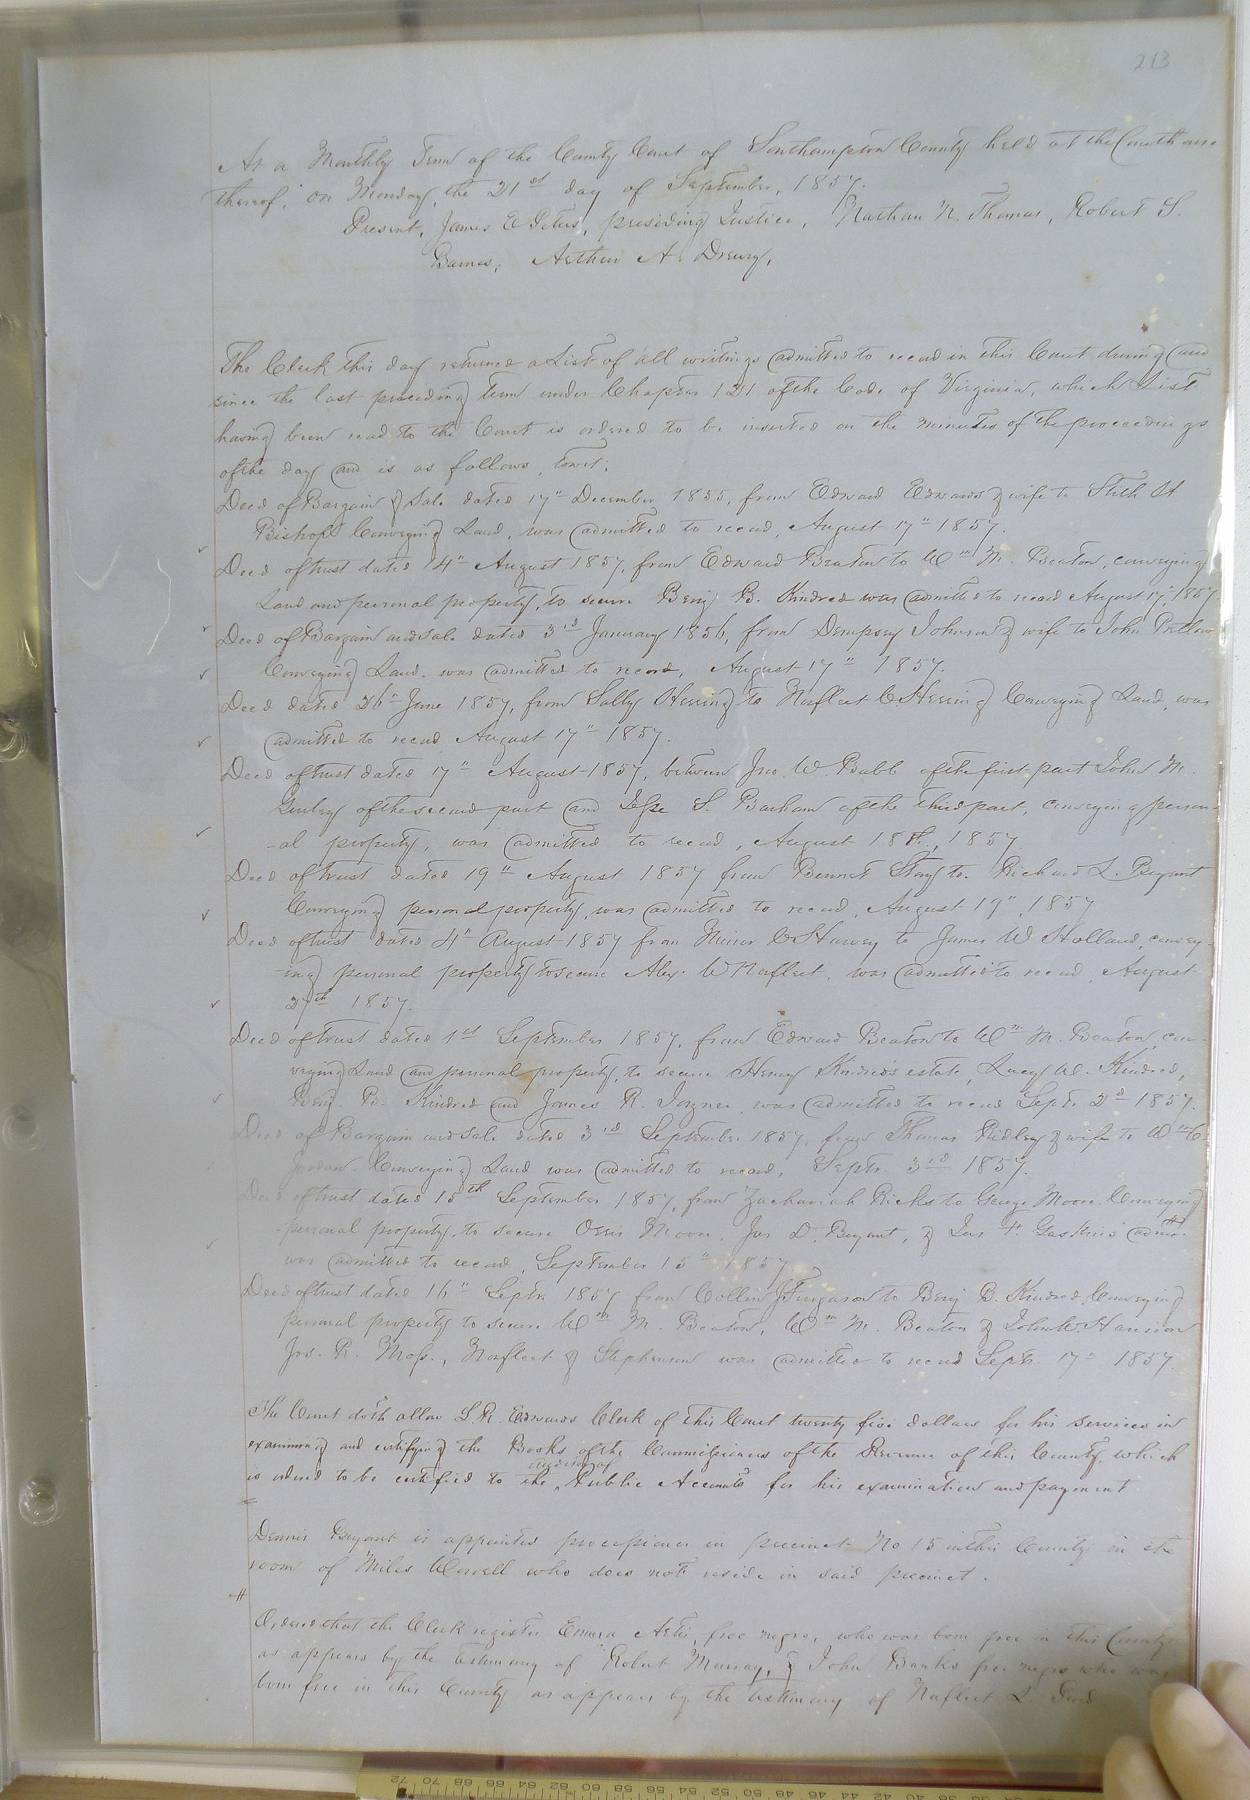 213
At a Monthly Term of the County Court of Southampton County held at the Courthouse
thereof, on Monday, the 21st day of September, 1857.
Present, James E Peters, presiding Justice, Nathan N. Thomas, Robert S.
Barnes, Arthur A. Drewry,
The Clerk this day returned a List of all writings admitted to record in this Court during and
since the last preceding term under Chapter 121 of the Code of Virginia, which List
having been read to the Court is ordered to be inserted on the minutes of the proceedings
of the day and is as follows, towit;
Deed of Bargain & Sale dated 17" December 1855, from Edward Edwards & wife to Stith H
Bishop Conveying Land, was admitted to record, August 17" 1857.
Deed of trust dated 4" August 1857, from Edward Beaton to Wm M. Beaton, conveying
Land and personal property, to secure Benj B. Kindred was admitted to record August 17" 1857
Deed of Bargain and sale dated 3rd January 1856, from Dempsey Johnson & wife to John
Conveying Land, was admitted to record, August 17" 1857.
Deed dated 26" June 1857, from Sally Herring to Norfleet C Herring Conveying Land, was
admitted to record August 17" 1857.
Deed of trust dated 17" August 1857, between Jno. W Babb of the first part John M.
Gurley of the second part and Jesse S. Barham of the third part, conveying person-
-al property, was admitted to record, August 18th, 1857
Deed of trust dated 19" August 1857 from Bennet to Richard L. Bryant
Conveying personal property, was admitted to record, August 19", 1857
Deed of trust dated 4" August 1857 from C Harvey to James W Holland, convey-
-ing personal property to secure Alex. W Norfleet, was admitted to record August
27th 1857.
Deed of trust dated 1st September 1857, from Edward Beaton to Wm M. Beaton, con-
veying Land and personal property, to secure Henry Kindred's estate, Lucy W. Kindred,
Benj. B. Kindred and James R. Joyner was admitted to record Septr. 2d 1857.
Deed of Bargain and sale dated 3rd September 1857, from Thomas Ridley & wife to Wm C
Jordan Conveying Land was admitted to record, Septr. 3rd 1857.
Deed of trust dated 15th September 1857, from Zachariah Ricks to George Moore Conveying
personal property, to secure Orris Moore, Jas D. Bryant, & Jas F. Gaskins' admr.
was admitted to record, September 15" 1857
Deed of trust dated 16" Septr. 1857 from Collin J Ferguson to Benj B. Kindred, Conveying
personal property to secure Wm M. Beaton, Wm M. Beaton & John W. Harrison
Jos. R. Moss, Norfleet & Stephenson was admitted to record Septr. 17" 1857
The Court doth allow L. R. Edwards Clerk of this Court twenty five dollars for his services in
examining and certifying the Books of the Commissioners of the Revenue of this County, which
is ordered to be certified to the Auditor of Public Accounts for his examination and payment
Dennis Bryant is appointed processioner in precinct No 15 in this County in the
room of Miles Worrell who does not reside in said precinct.
Ordered that the Clerk register Emma Artis, free negro, who was born free in this County
as appears by the testimony of Robert Murray, & John Banks free negro who was
born free in this County as appears by the testimony of Norfleet L